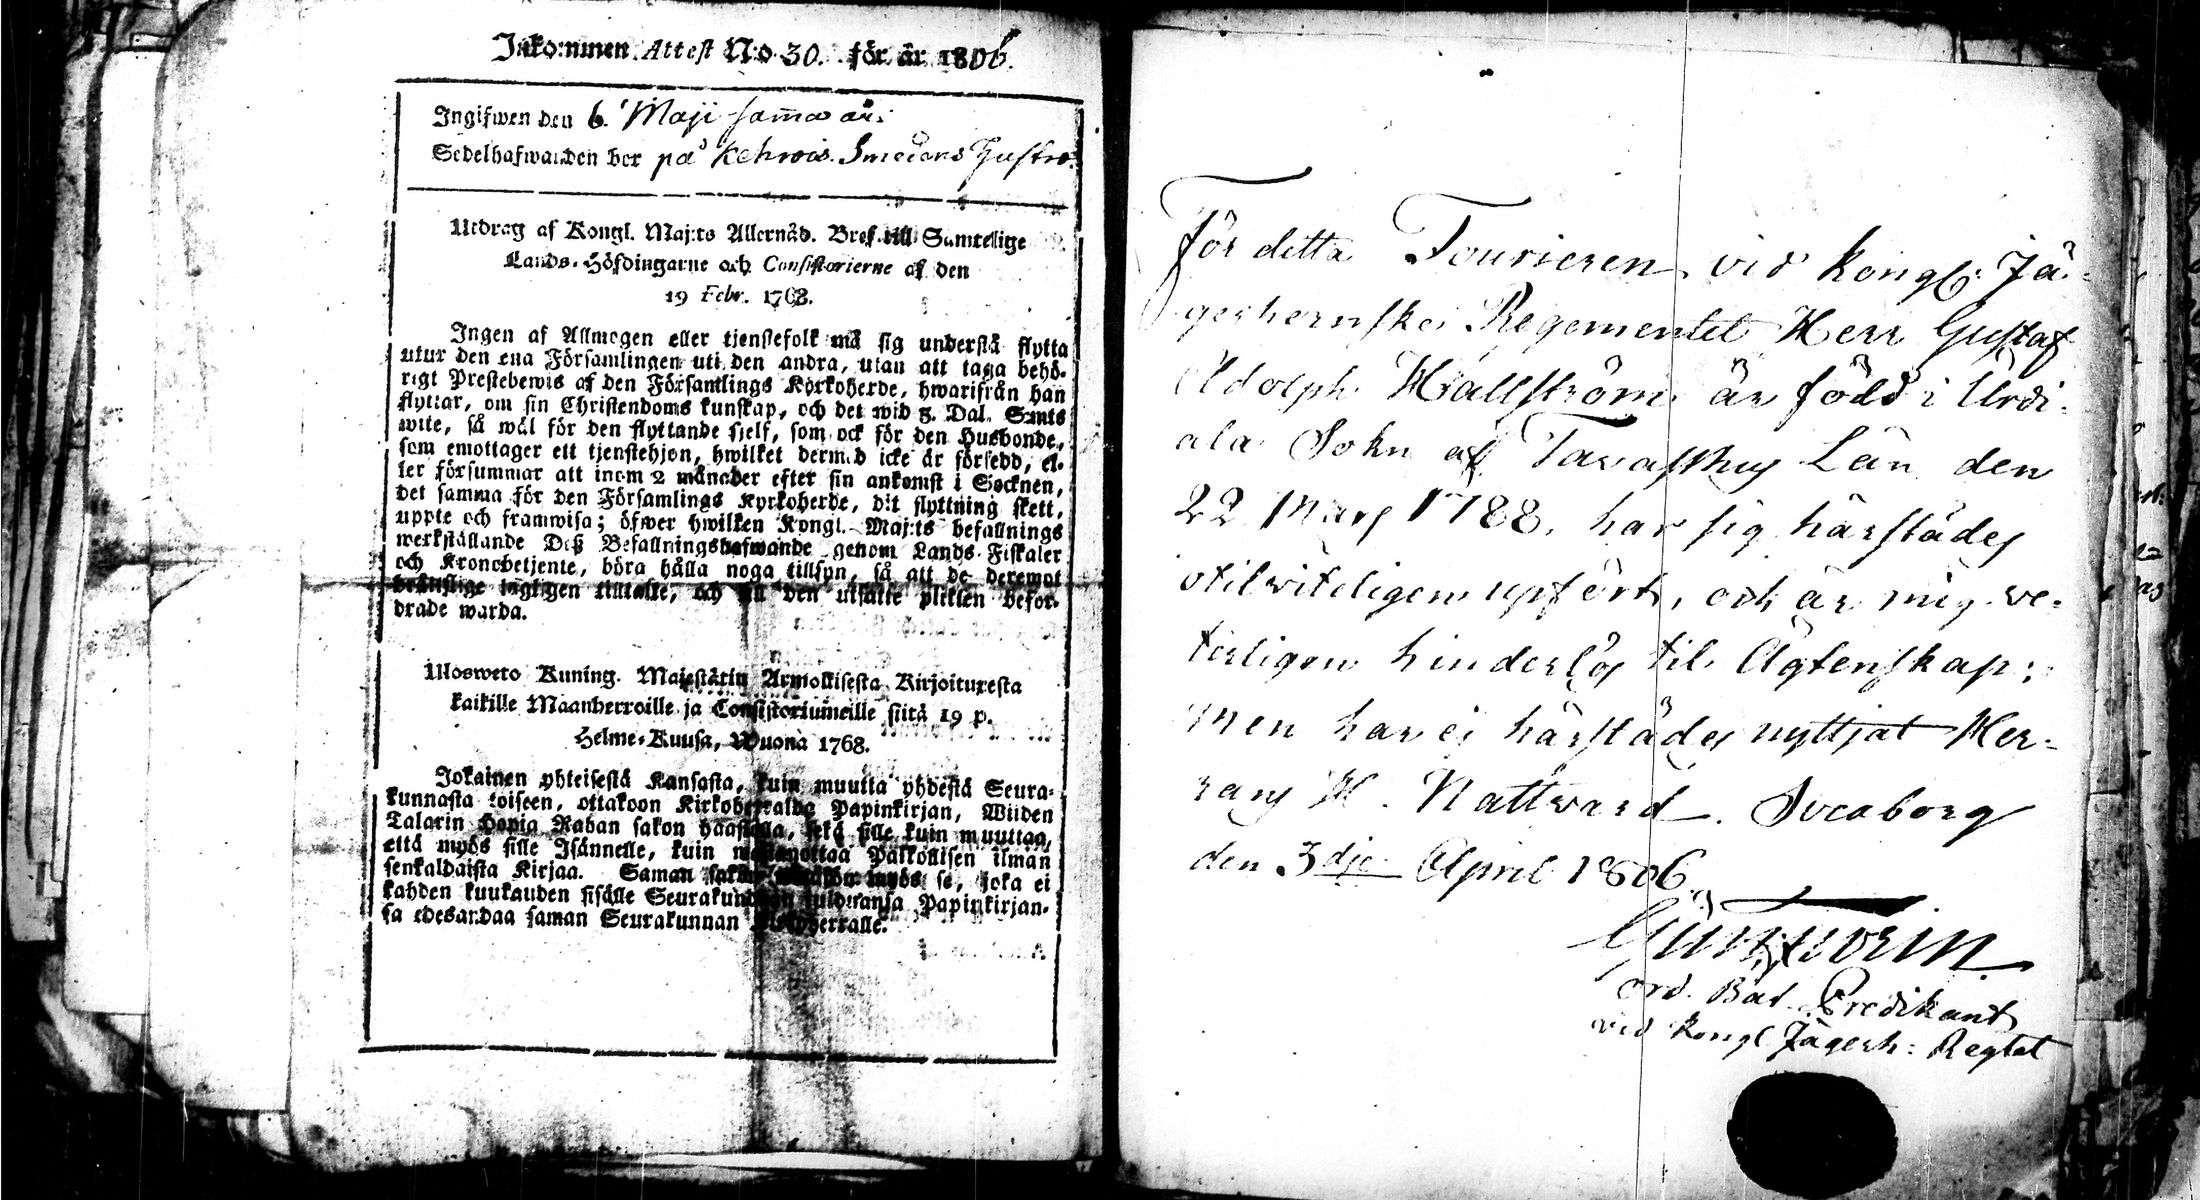 Inkommen Attest No 30. för år 1806.
Ingifwen den 6. Maji samma år.
Sedelhafwanden bor på Kehrois Smedens Hustro.
Utdrag af Kongl. Maj:ts Allernåd. Bref till Samtelige
Lands-Höfdingarne och Consistorierne af den
19 Febr. 1768.
Ingen af Allmogen eller tjenstefolk må sig understå flytta
utur den ena Församlingen uti den andra, utan att taga behö-
rigt Prestebewis af den Församlings Kyrkoherde, hwarifrån han
flyttar, om sin Christendoms kunskap, och det wid 5. Dal. S:mts
wite, så wäl för den flyttande sjelf, som ock för den Husbonde,
som emottager ett tjenstehjon, hwilket dermed icke är försedd, el-
ler försummar att inom 2 månader efter sin ankomst i Socknen,
det samma för den Församlings Kyrkoherde, dit flyttning skett,
uppte och framwisa; öfwer hwilken Kongl. Maj:ts befallnings
werkställande Deß Befallningshafwande genom Lands-Fiskaler
och Kronobetjente, böra hålla noga tillsyn, så att de deremot
brottslige lagligen tilltalte, och till den utsatte plikten befor-
drade warda.
Ulosweto Kuning. Majestätin Armollisesta Kirjoituxesta
kaikille Maanherroille ja Consistoriumeille siitä 19 p.
Helme-Kuusa, Wuona 1768.
Jokainen yhteisestä Kansasta, kuin muutta yhdestä Seura-
kunnasta toiseen, ottakoon Kirkoherralda Papinkirjan, Wiiden
Talarin Hopia Rahan sakon haastolla, sekä sille kuin muuttaa,
että myös sille Isännelle, kuin wastanottaa Palkollisen ilman
senkaldaista Kirjaa. Saman sakon myös se, joka ei
kahden kuukauden sisälle Seurakundaan tulduansa Papinkirjan-
sa edesandaa saman Seurakunnan Kirkoherralle.
För detta Fourieren vid kongl: Jä-
gerhornska Regementet Herr Gustaf
Adolph Hallström är född i Urdi-
ala Sokn af Tavasthus Län den
22 Mars 1788, har sig härstädes
otilviteligen upfört, och är mig ve-
terligen hinderlös til Ägtenskap;
men har ei härstädes nyttjat Her-
rans H. Nattvard. Sveaborg
den 3dje April 1806.
ord. Bat. Predikant
vid kongl Jägerh: Regtet